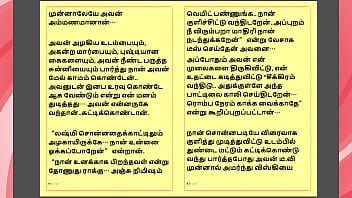 முன்னாலேயே அவன்
அம்மணமானான்...
அவன் அழகிய உடம்பையும்,
அகன்ற மார்பையும், புஷ்டியான
கைகளையும், அவன் நீண்ட பருத்த
சுன்னியையும் பார்த்து நான் அவன்
மேல் காமம் கொண்டேன்..
அவனுடன் இன்ப உறவு கொண்டே
ஆக வேண்டும் என்று என் மனம்
துடித்தது... அவன் என்னருகே
வந்தான்..கட்டிக்கொண்டான்.
"லஷ்மி சொன்னதைக்காட்டிலும்
அழகாயிருக்கே... நான் உன்னை
ஓக்கப்போறேன்" என்றான்.
"நான் உனக்காக பிறந்தவள் என்று
தோணுது ராக்கு... அஞ்சு நிமிஷம்
வெயிட் பண்ணுங்க.. நான்
குளிச்சிட்டு வந்திடறேன்..அப்புறம்
நீ விரும்பறா மாதிரி நான்
நடந்துக்கறேன்" என்று வேசாக
மஸ் செய்தேன் அவனை...
அப்போதும் அவன் என்
முலைகளை திருகிவிட்டு, என்
உதட்டை கடித்துவிட்டு "சீக்கிரம்
வந்திடு.. அதுக்குள்ளே அந்த
பாட்டிலை காலி செய்திடறேன்...
ரொம்ப நேரம் காக்க வைக்காதே"
என்று கூறிச்சிரிப்பூட்டான்...
நான் சொன்னபடியே விரைவாக
குளித்து முடித்துவிட்டு உடம்பில்
துண்டை மட்டும் கட்டிக்கொண்டு
வந்து பார்த்தபோது அவன் டீ.வி
முன்னால் அமர்ந்து விஸ்கியை